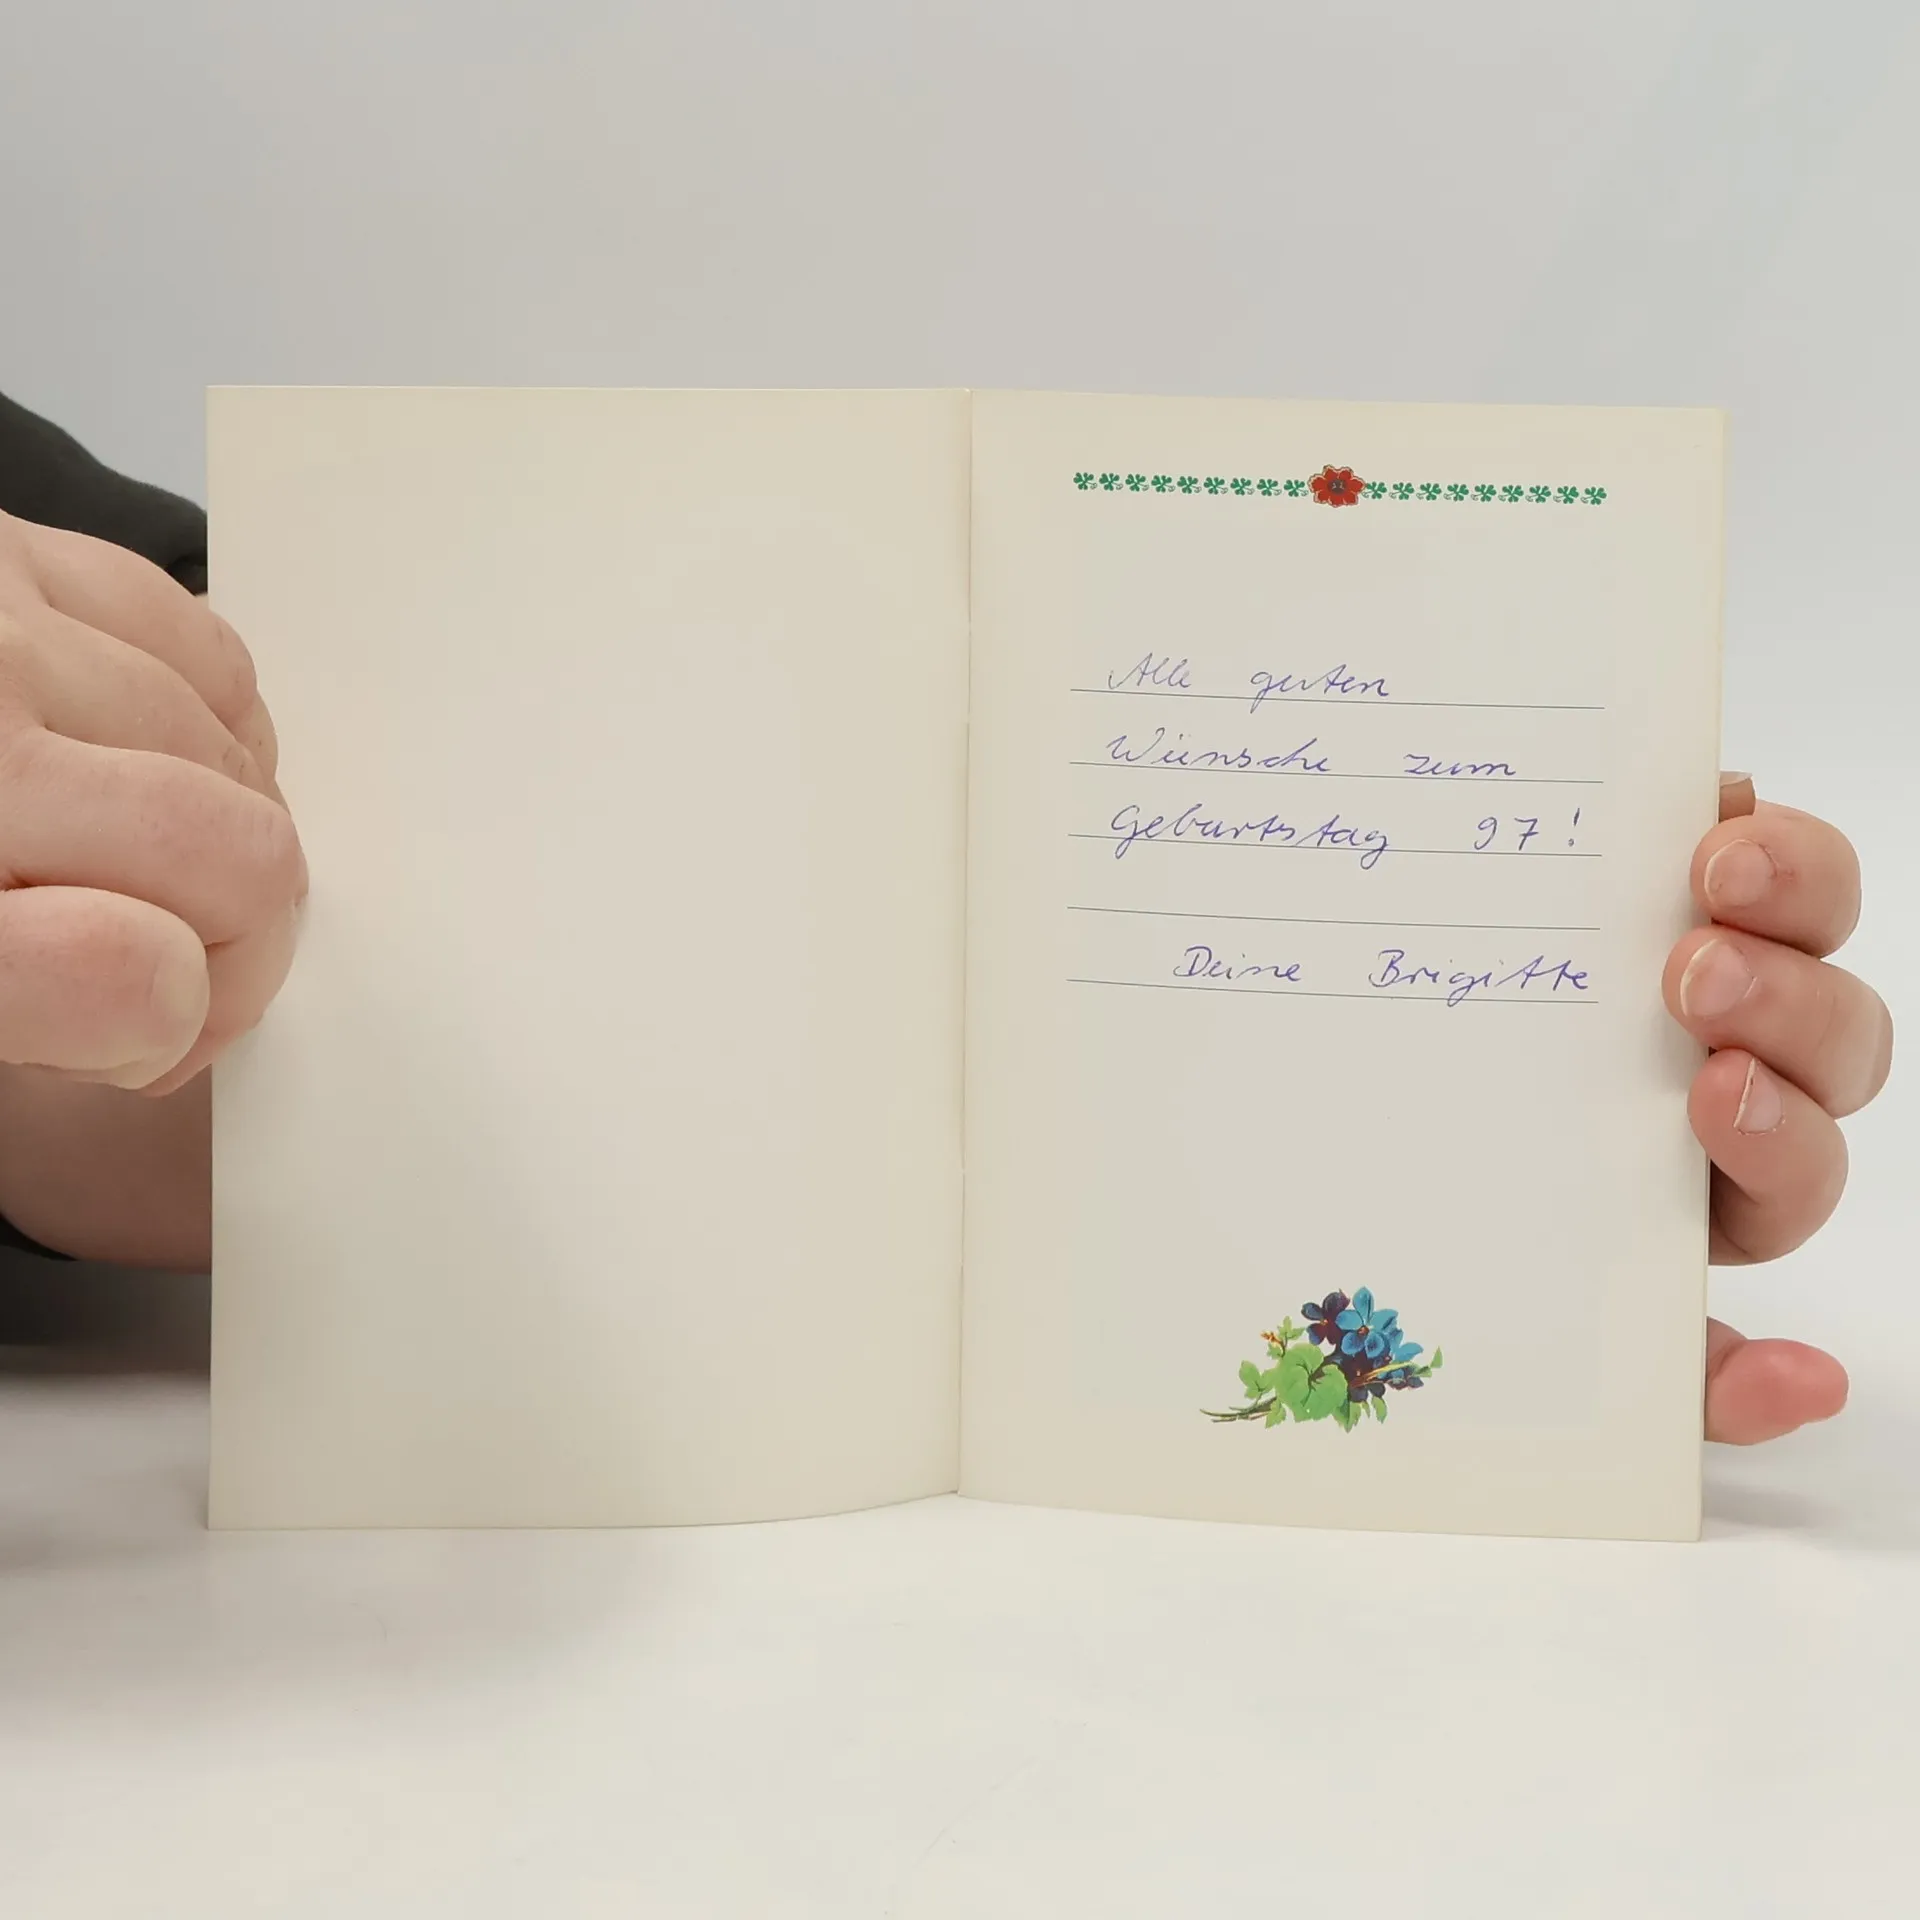 Alle guten
Wünsche zum
Geburtstag 97!
Deine Brigitte